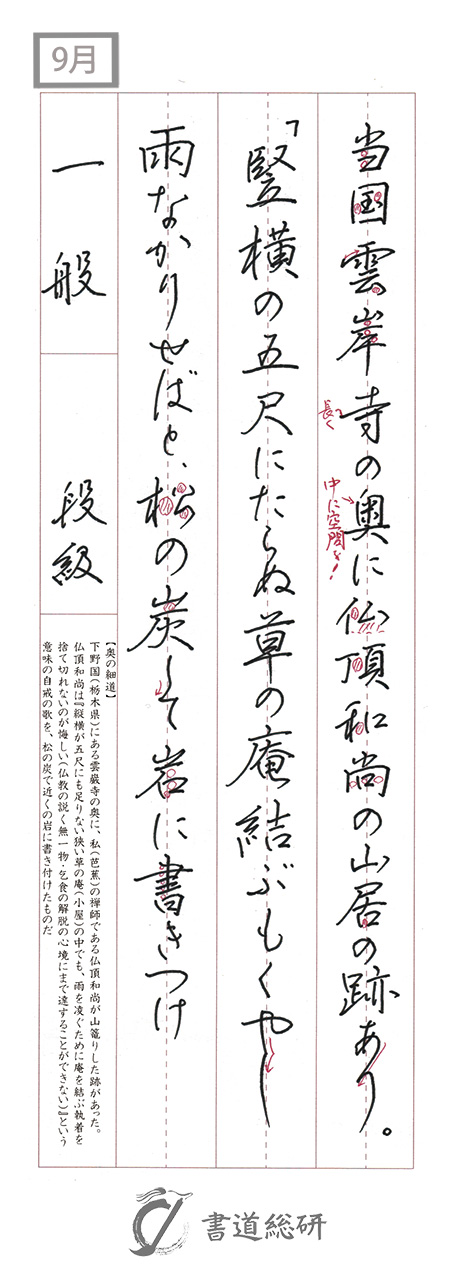 9月
当国雲岸寺の奥に仏頂和尚の山居の跡あり。
長く
中に空間を！
「竪横の五尺にたらぬ草の庵結ぶもくやし
雨なかりせばと、松の炭して岩に書きつけ
一般
段級
【奥の細道】
下野国(栃木県)にある雲巌寺の奥に、私(芭蕉)の禅師である仏頂和尚が山篭りした跡があった。
仏頂和尚は『縦横が五尺にも足りない狭い草の庵(小屋)の中でも、雨を凌ぐために庵を結ぶ執着を
捨て切れないのが悔しい(仏教の説く無一物・乞食の解脱の心境にまで達することができない)』という
意味の自戒の歌を、松の炭で近くの岩に書き付けたものだ
書道総研